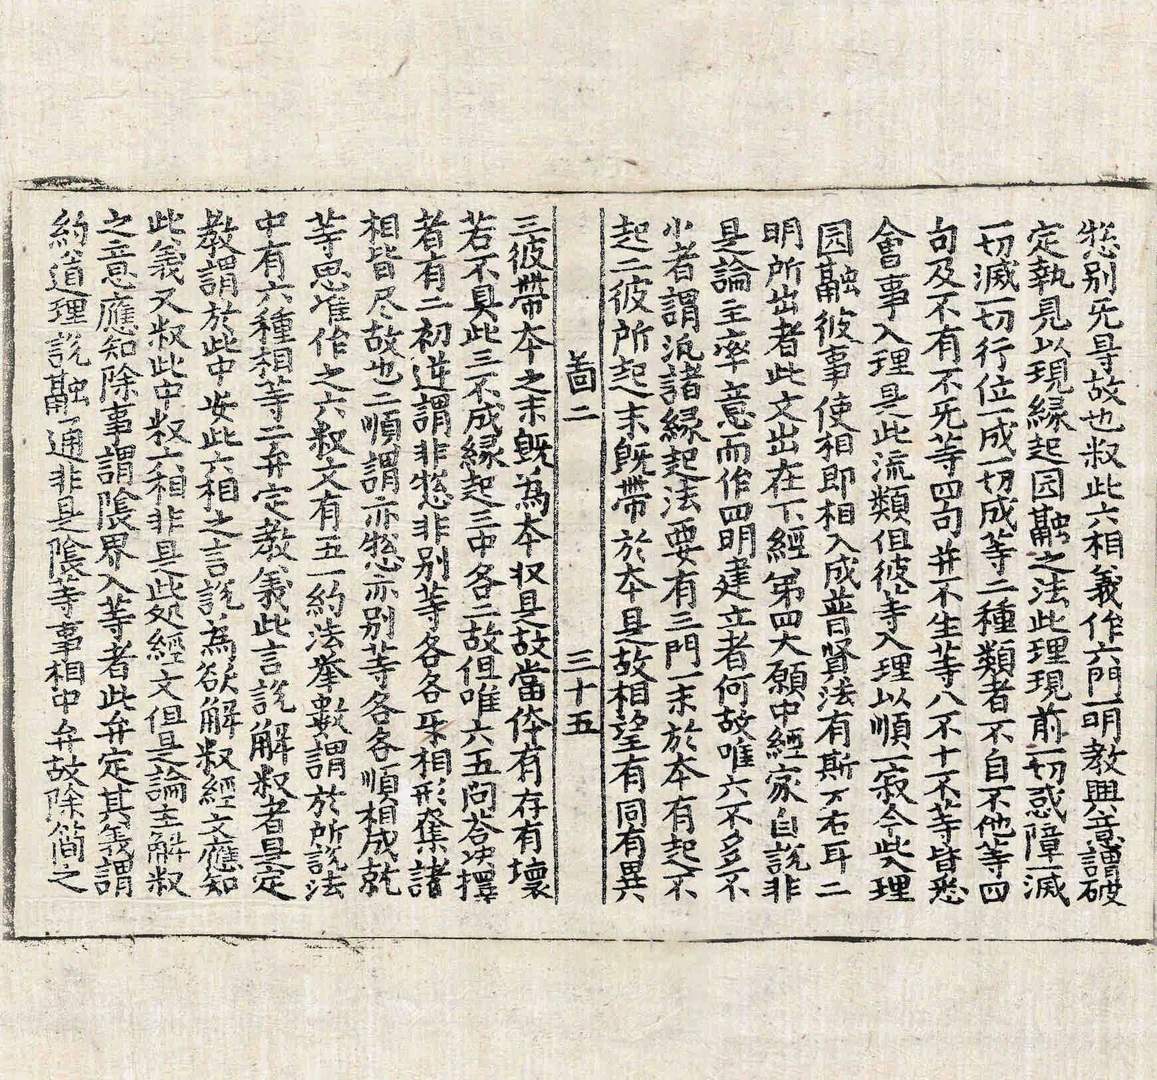 惣别旡导故也叙此六相義作六門一明教興意謂破
定執見以現縁起园融之法此理現前一切惑障一滅
一切滅一切行位一成一切成等二種類者不自不他等四
句及不有不旡等四句并不生等八不十一不等皆悉
會事入理是此流類但彼等入理以順一寂今此入理
园融彼事使相即相入成普賢法有斯左右耳二
明所出者此文出在下經第四大願中經家自說非
是論主率意而作四明建立者何故唯六不多不
少者謂汎諸縁起法要有三門一末於本有起不
起二彼所起末旣帶於本是故相望有同有異
啚二 三十五
三彼帶本之末旣為本収是故當体有存有壞
若不具此三不成縁起三中各二故但唯六五問荅决擇
者有二初逆謂非惣非别等各各互相形奪諸
相皆尽故也二順謂亦惣亦别等各各順相成就
等思准作之六叙文有五一約法挙數謂於所說法
中有六種相等二弁定教義此言說解釈者是定
教謂於此中安此六相之言說為欲解釈經文應知
此義又叙此中叙六相非是此処經文但是論主解叙
之意應知除事謂陰界入等者此弁定其義謂
約道理說融通非是陰等事相中弁故除簡之